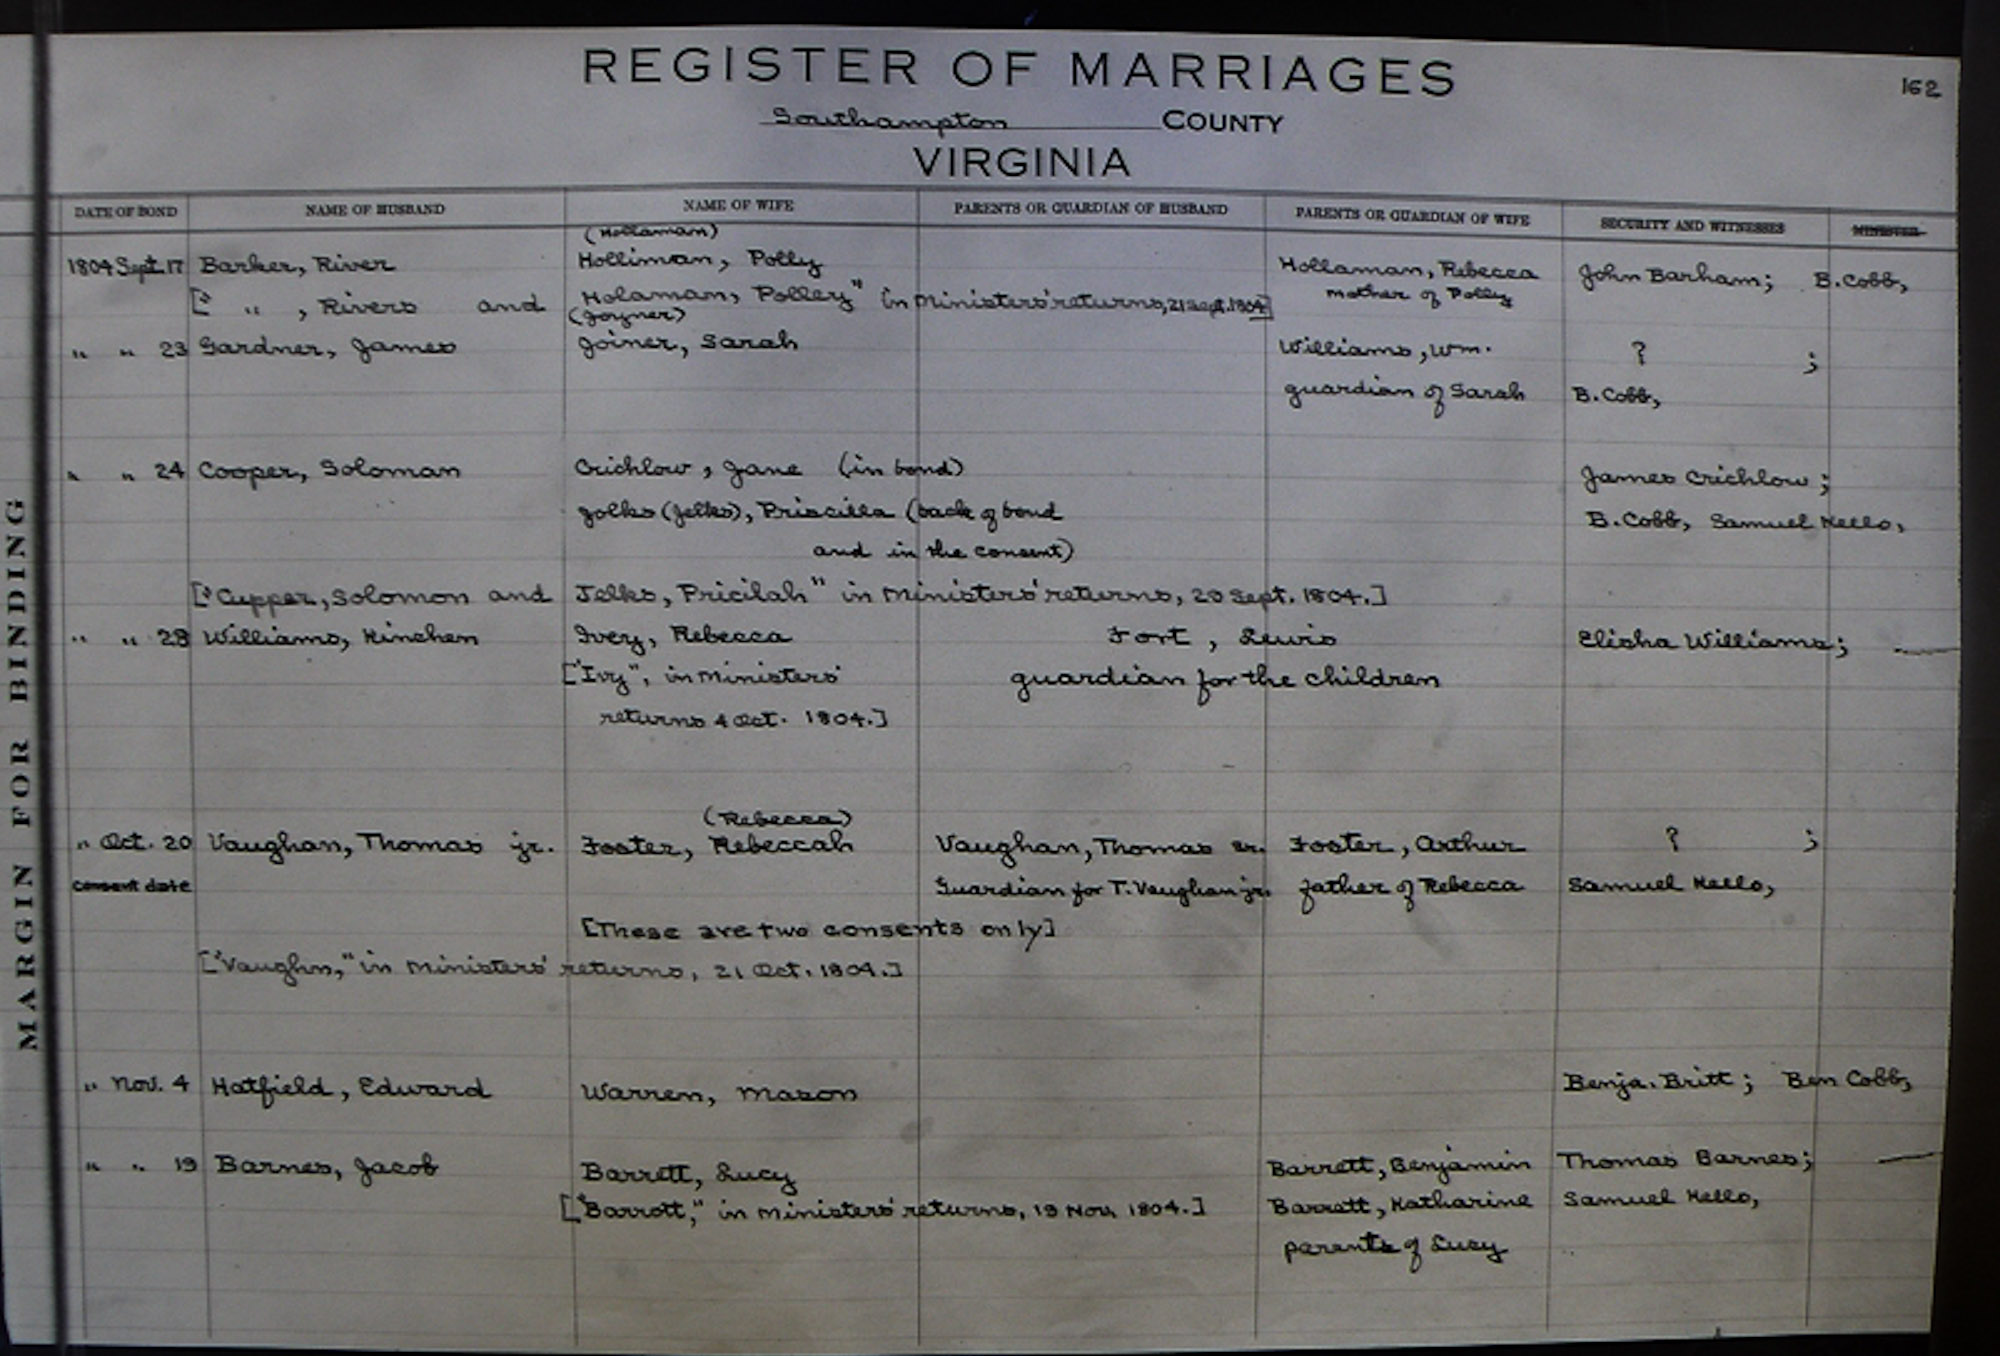 REGISTER OF MARRIAGES
162
Southampton COUNTY
VIRGINIA
DATE OF BOND NAME OF HUSBAND NAME OF WIFE PARENTS OR GUARDIAN OF HUSBAND PARENTS OR GUARDIAN OF WIFE SECURITY AND WITNESSES MINISTER
(Hollaman)
1804 Sept. 17 Barker, River Holliman, Polly Hollaman, Rebecca John Barham; B. Cobb,
mother of Polly
[" " , Rivers and Holaman, Polley" in Ministers' returns, 21 Sept. 1804]
(Joyner)
" " 23 Gardner, James Joiner, Sarah Williams, Wm. ? ;
guardian of Sarah B. Cobb,
" " 24 Cooper, Soloman Crichlow, Jane (in bond) James Crichlow;
Jolks (Jelks), Priscilla (back of bond B. Cobb, Samuel Kello,
and in the consent)
["Cupper, Solomon and Jelks, Pricilah" in Ministers' returns, 29 Sept. 1804.]
" " 28 Williams, Kinchen Ivey, Rebecca Fort, Lewis Elisha Williams; —
["Ivy", in Ministers' guardian for the children
returns 4 Oct. 1804.]
(Rebecca)
" Oct. 20 Vaughan, Thomas jr. Foster, Rebeccah Vaughan, Thomas sr. Foster, Arthur ? ;
consent date Guardian for T. Vaughan jr. father of Rebecca Samuel Kello,
[These are two consents only]
["Vaughn," in Ministers' returns, 21 Oct. 1804.]
" Nov. 4 Hatfield, Edward Warren, Mason Benja. Britt; Ben Cobb,
" " 19 Barnes, Jacob Barrett, Lucy Barrett, Benjamin Thomas Barnes; —
["Barrott," in Ministers' returns, 19 Nov. 1804.] Barrett, Katharine Samuel Kello,
parents of Lucy
MARGIN FOR BINDING